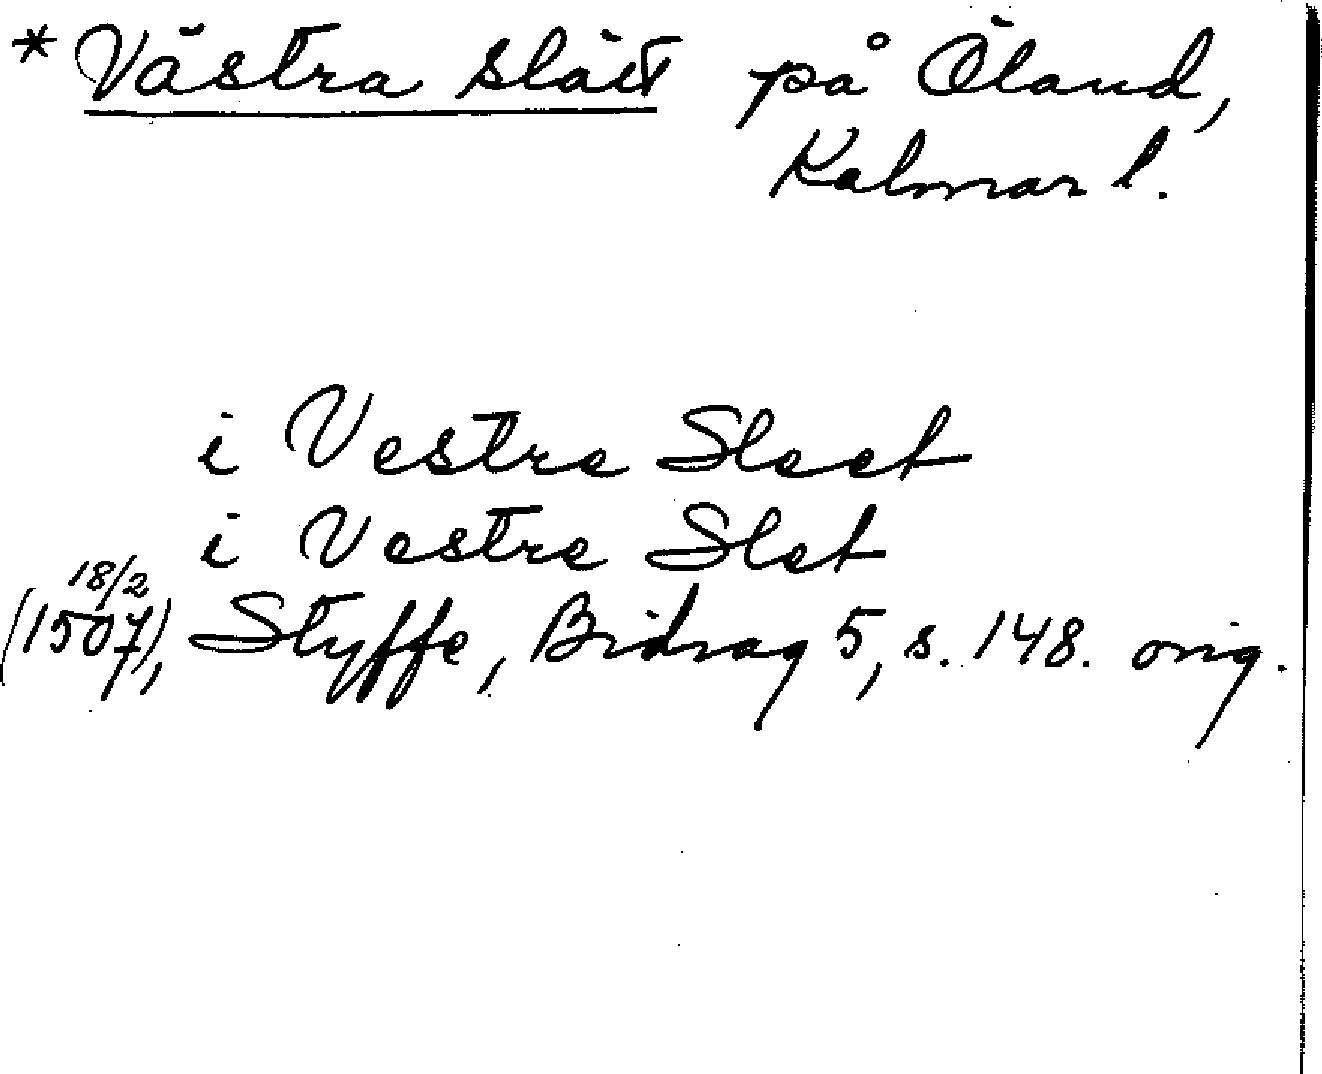 * Västra slätt på Öland,
Kalmar l.
i Vestre Sleet
i Vestre Slet
18/2
(1507), Styffe, Bidrag 5, s. 148. orig.